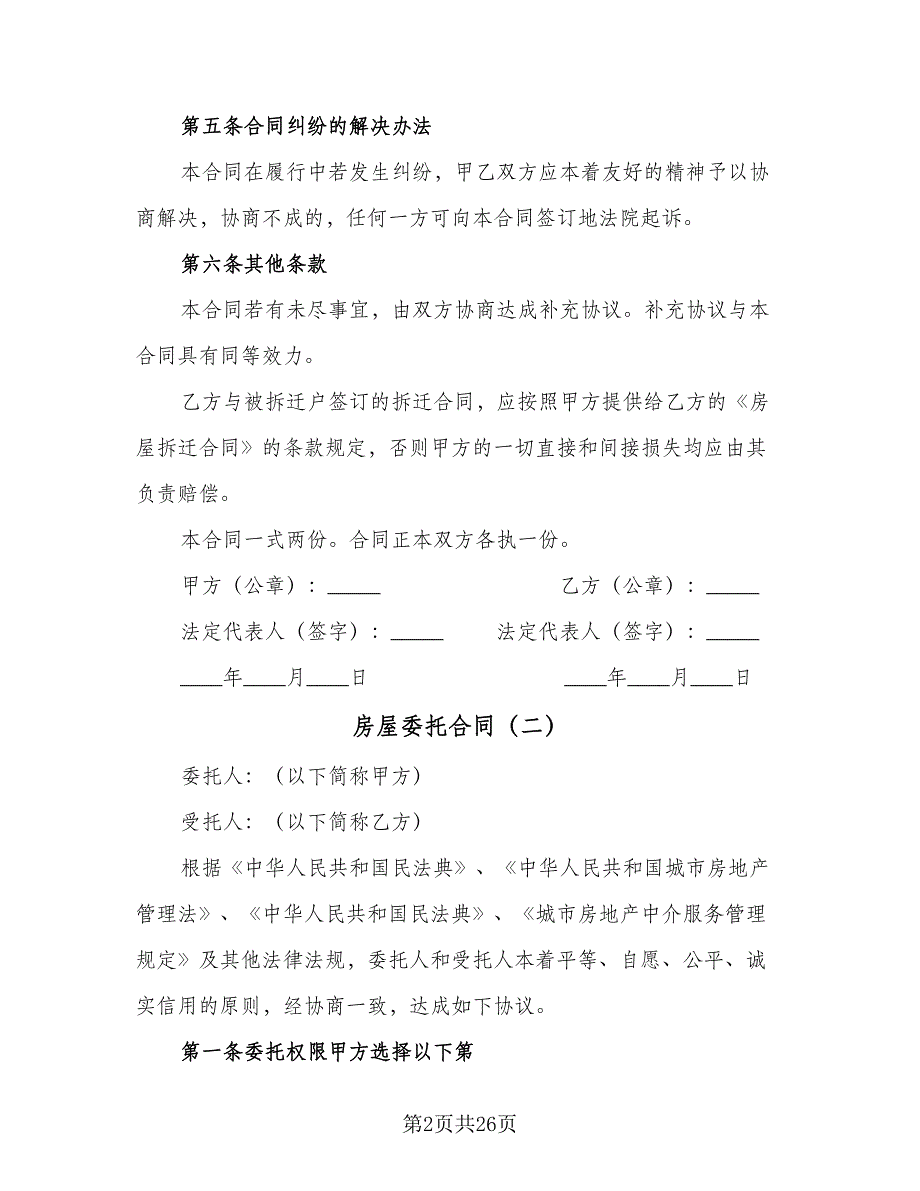 第五条合同纠纷的解决办法
本合同在履行中若发生纠纷，甲乙双方应本着友好的精神予以协
商解决，协商不成的，任何一方可向本合同签订地法院起诉。
第六条其他条款
本合同若有未尽事宜，由双方协商达成补充协议。补充协议与本
合同具有同等效力。
乙方与被拆迁户签订的拆迁合同，应按照甲方提供给乙方的《房
屋拆迁合同》的条款规定，否则甲方的一切直接和间接损失均应由其
负责赔偿。
本合同一式两份。合同正本双方各执一份。
甲方（公章）：_____ 乙方（公章）：_____
法定代表人（签字）：_____ 法定代表人（签字）：_____
____年____月____日 ____年____月____日
房屋委托合同（二）
委托人：（以下简称甲方）
受托人：（以下简称乙方）
根据《中华人民共和国民法典》、《中华人民共和国城市房地产
管理法》、《中华人民共和国民法典》、《城市房地产中介服务管理
规定》及其他法律法规，委托人和受托人本着平等、自愿、公平、诚
实信用的原则，经协商一致，达成如下协议。
第一条委托权限甲方选择以下第
第2页共26页